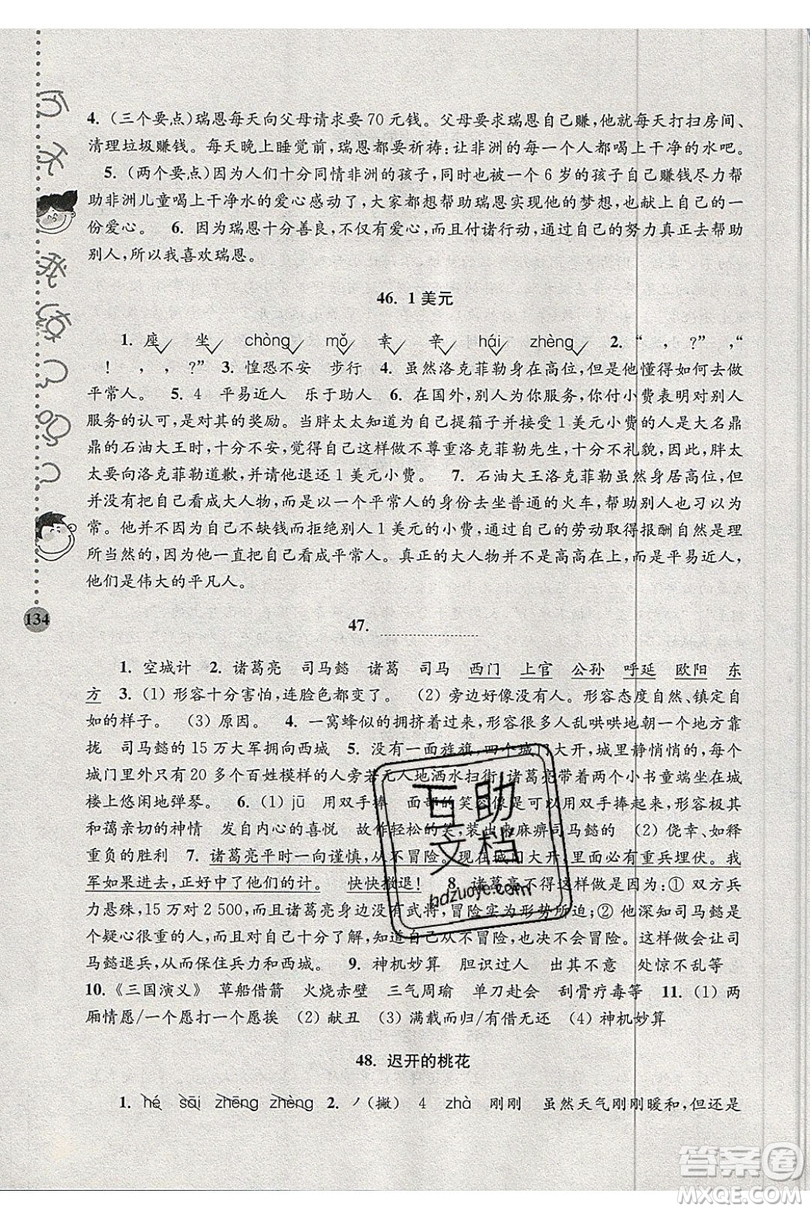 4. (三个要点)瑞恩每天向父母请求要 70 元钱。父母要求瑞恩自己赚,他每天打扫房间、
清理垃圾赚钱。每天晚上睡觉前,瑞恩都要祈祷:让非洲的每一个人都喝上干净的水吧。
5. (两个要点)因为人们十分同情非洲的孩子,同时也被一个 6 岁的孩子自己赚钱尽力帮
助非洲儿童喝上干净水的爱心所感动了,大家都想帮助瑞恩实现他的梦想,献出自己的一
份爱心。 6. 因为瑞恩十分善良,不仅有爱心,而且付诸行动,通过自己的努力真正去帮助
别人,所以我喜欢瑞恩。
46. 1 美元
1. 座 坐 chòng mǒ 幸 辛 hái zhèng 2. “ , ?” ,“
! , , ?” 3. 惶恐不安 步行 4. 虽然洛克菲勒身在高位,但是他懂得如何去做
平常人。 5. 4 平易近人 乐于助人 6. 在国外,别人为你服务,你付小费表明对别人
服务的认可,或对其的奖励。当胖太太知道为自己提箱子并接受 1 美元小费的人是大名鼎
鼎的石油大王时,十分不安,觉得自己这样做不尊重洛克菲勒先生,十分不礼貌,所以胖太
太要向洛克菲勒道歉,并请他退还 1 美元小费。 7. 石油大王洛克菲勒虽然身居高位,但
是他没有把自己看成大人物,而是像平常人那样去坐普通的火车,帮助别人也可以习以为
常。他也没有因为自己不缺钱而拒绝别人 1 美元的小费,自己的劳动取得报酬自然是理
所当然的,因为他一直把自己看成平常人。真正的大人物不是高高在上,而是平易近人,
他们是伟大的平凡人。
134
47.
1. 空城计 2. 诸葛亮 司马懿 诸葛 司马 西门 上官 公孙 呼延 欧阳 东
方 3. (1) 形容十分害怕,连脸色都变了。 (2) 旁边好像没有人。形容态度自然、镇定自
如的样子。 (3) 原因。 4. 一窝蜂似的拥挤着过来,形容很多人乱哄哄地朝一个地方靠
拢 司马懿的 15 万大军拥向西城 5. 没有一面旌旗,四个城门大开,城里静悄悄的,每个
城门处只有 20 多个百姓模样的人旁若无人地洒水扫街,诸葛亮带着两个小书童端坐在城
楼上悠闲地弹琴。 6. (1) jū 用双手捧 面部的笑容像是可以用双手捧起来,形容极其
和蔼亲切的神情 发自内心的喜悦 故作轻松的笑,装出来麻痹司马懿的 (2) 侥幸、如释
重负的胜利 7. 诸葛亮平时一向谨慎,从不冒险。现在城门大开,里面必有重兵埋伏。我
军如果进去,正好中了他们的计。 快快撤退! 8. 诸葛亮不得这样做的原因是:① 双方兵
力悬殊,15 万对 2 500,而且诸葛亮身边没有武将,冒险实为形势所迫;② 他深知司马懿是个
疑心很重的人,他十分了解自己从不冒险,所以想在危急关头冒险,迷惑司马懿,从而让司
马懿退兵,从而保住自己和西城。 9. 神机妙算 胆识过人 出其不意 处惊不乱等
10. 《三国演义》 草船借箭 火烧赤壁 三气周瑜 单刀赴会 刮骨疗毒等 11. (1) 两
厢情愿/一个愿打一个愿挨 (2) 献丑 (3) 满载而归/有借无还 (4) 神机妙算
48. 迟开的桃花
1. hé sāi zhēng zhèng 2. ノ(撇) 4 zhà 刚刚 虽然天气刚刚暖和,但还是
互助
文档
hdzuoye.com
答案圈
MXQE.COM